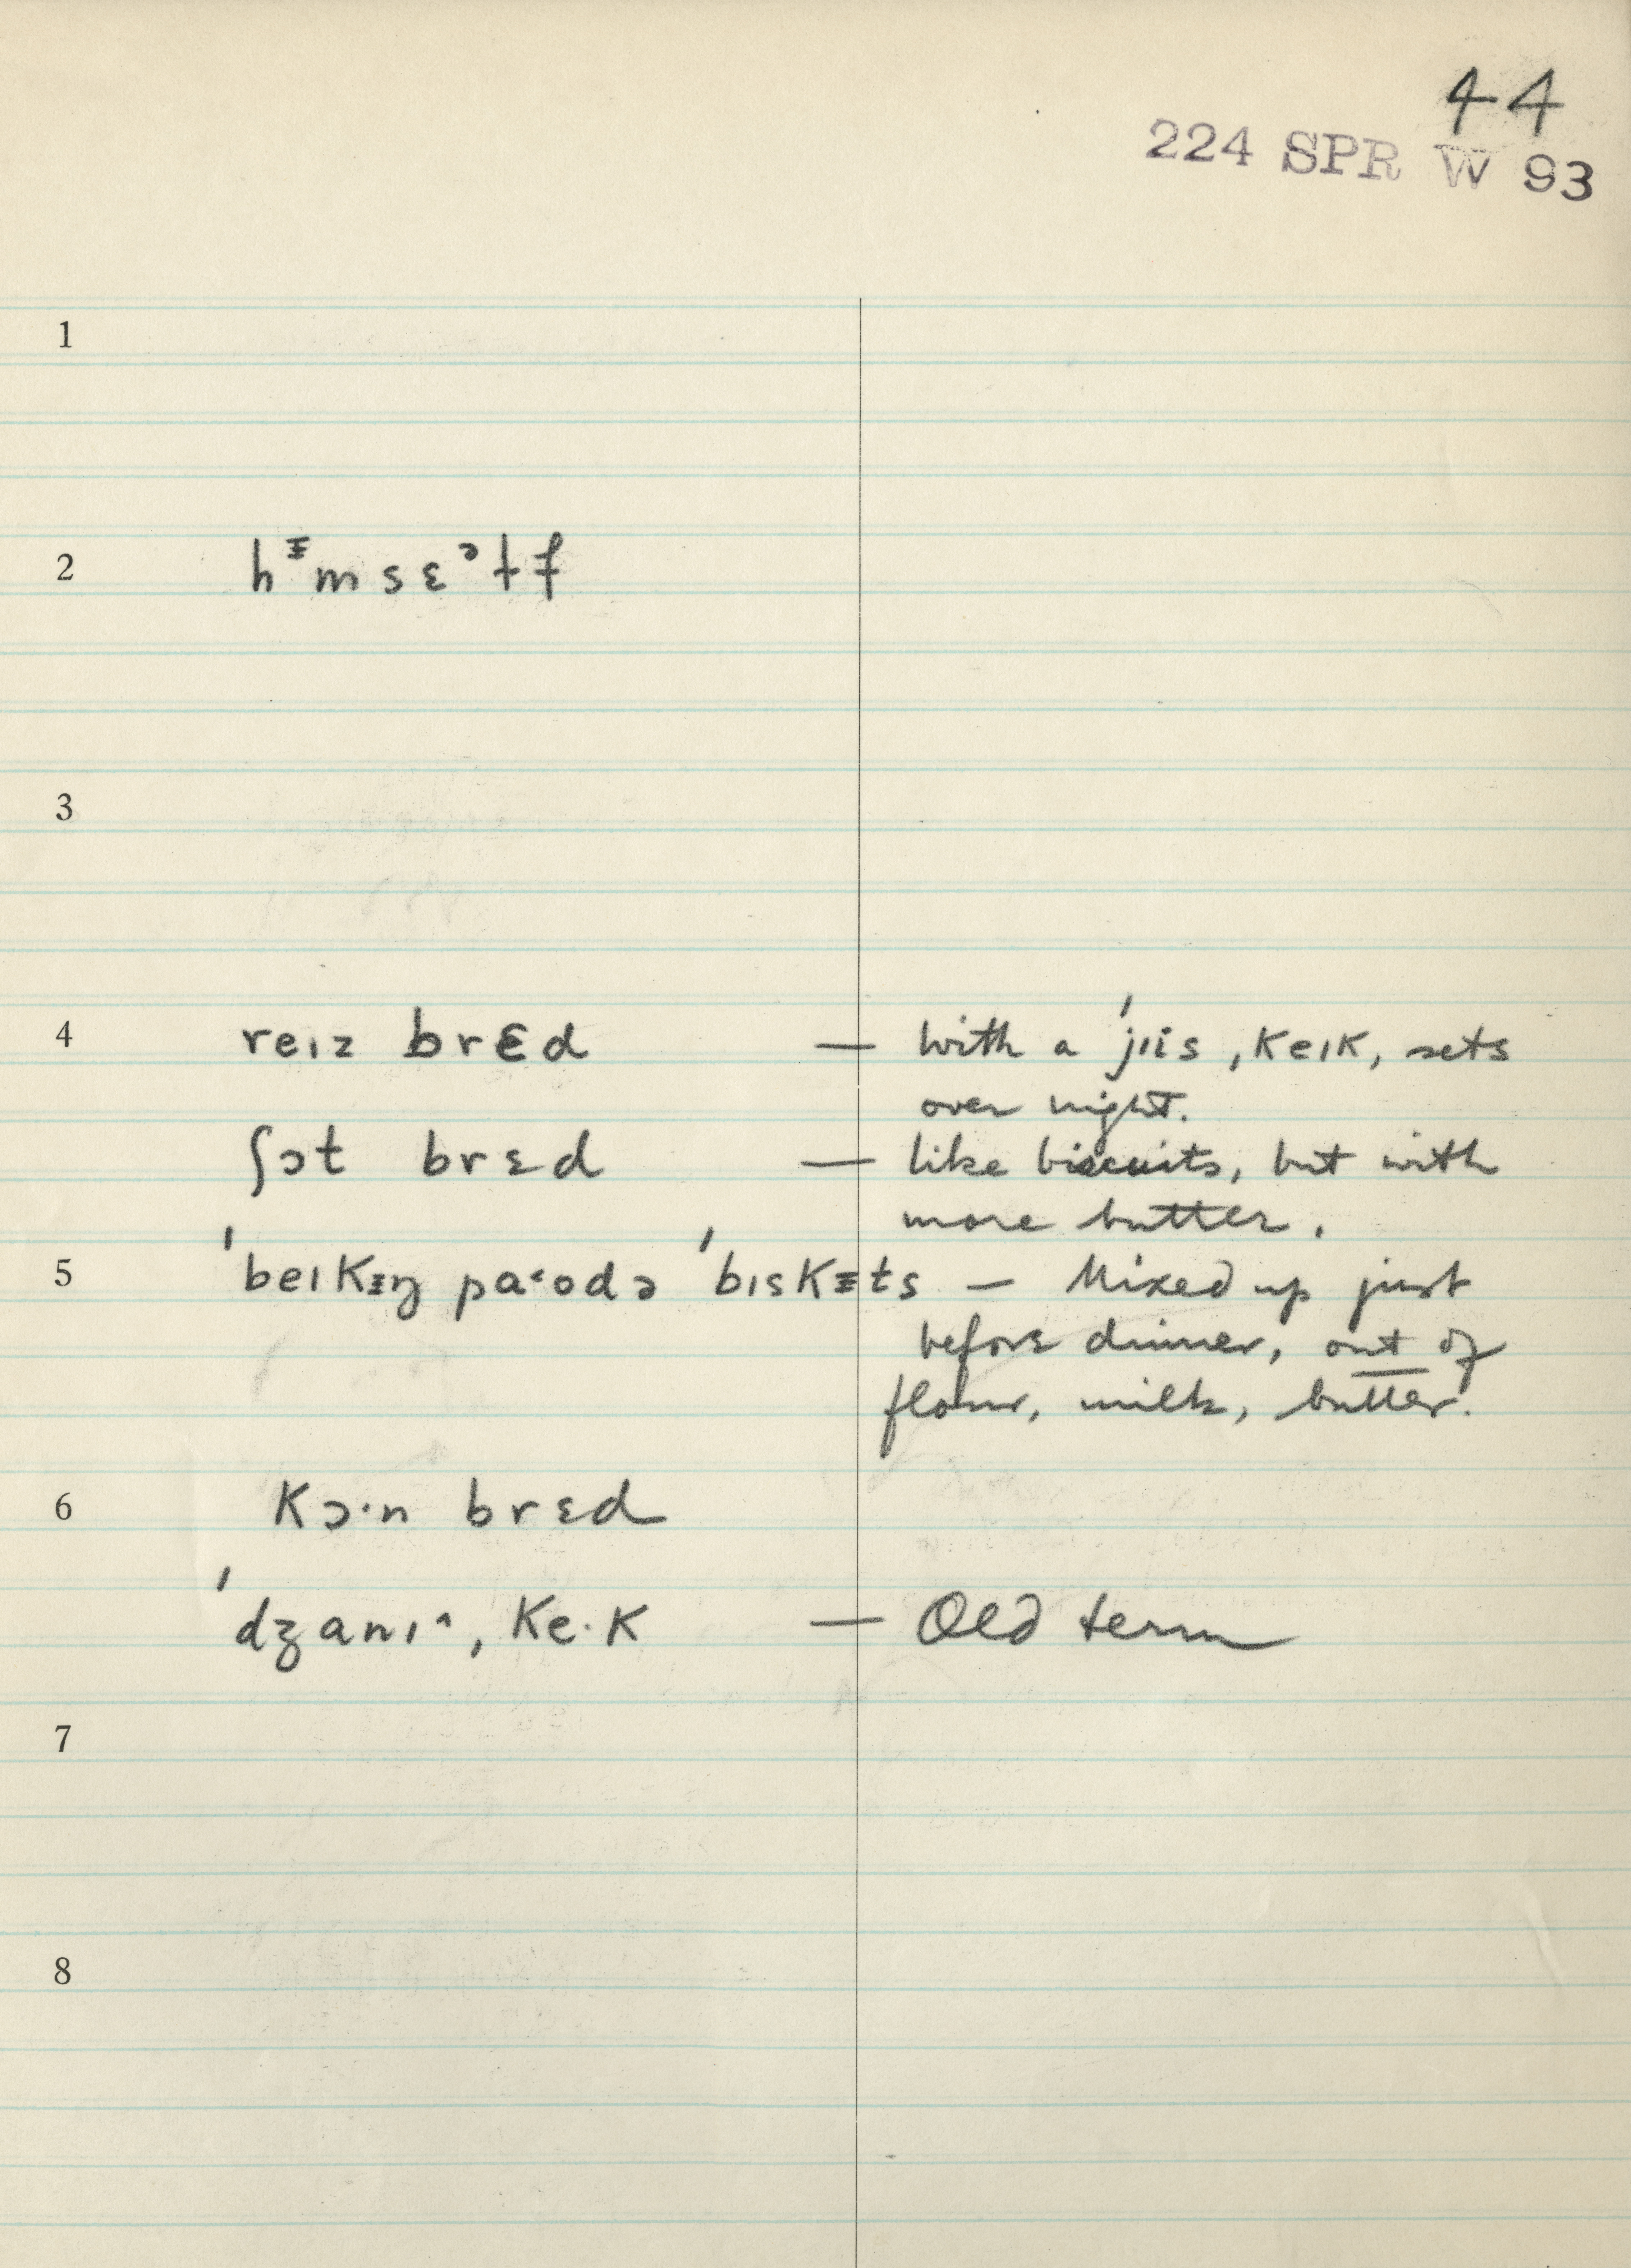 44
224 SPR W 93
1
2 hᵻmsɛᵊɫf
3
4 reɪz brɛd — with a ˈjɪis ˌkeɪk, sets
over night.
ʃɔt brɛd — like biscuits, but with
more butter.
5 ˈbeɪkᵻŋ pa˂odə ˈbɪskᵻts — Mixed up just
before dinner, out of
flour, milk, butter.
6 kɔ·n brɛd
ˈdʒanɪ^ ˌke·k — Old term
7
8